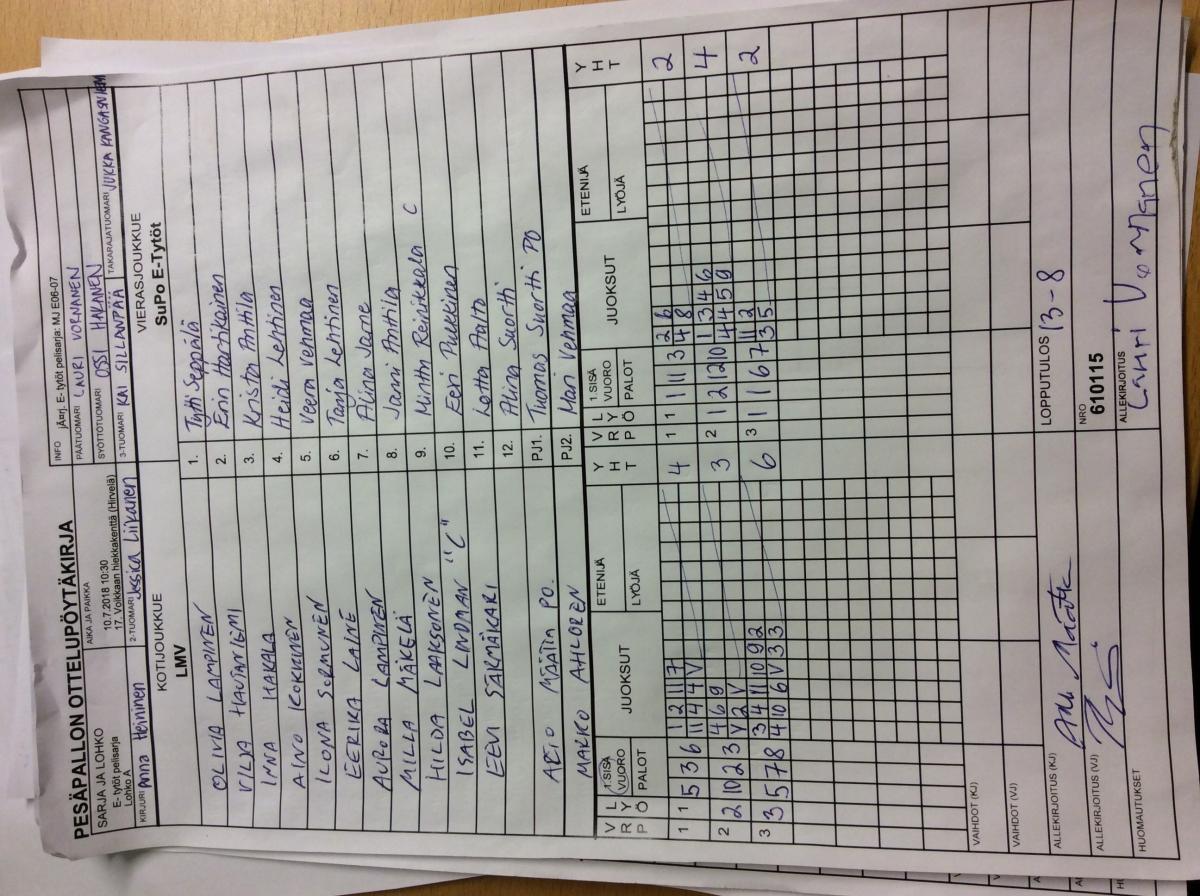 PESÄPALLON OTTELUPÖYTÄKIRJA
SARJA JA LOHKO
E- tytöt pelisarja
Lohko A
AIKA JA PAIKKA
10.7.2018 10:30
17. Voikkaan hiekkakenttä (Hirvelä)
INFO jÄ¤rj. E- tytöt pelisarja: MJ E06-07
PÄÄTUOMARI LAURI VORNANEN
SYÖTTÖTUOMARI OSSI HAKANEN
KIRJURI Anna Heininen
2-TUOMARI Jessica Liikanen
3-TUOMARI KAI SILLANPÄÄ
TAKARAJATUOMARI JUKKA KANGASNIEMI
KOTIJOUKKUE
LMV
VIERASJOUKKUE
SuPo E-Tytöt
OLIVIA LAMPINEN 1. Tytti Seppälä
VILJA HAUTANIEMI 2. Enni Haatikainen
INNA HAKALA 3. Krista Anttila
AINO KOKKINEN 4. Heidi Lehtinen
ILONA SORMUNEN 5. Veera Venmaa
EERIKA LAINE 6. Tanja Lehtinen
AURORA LAMPINEN 7. Alina
MILLA MÄKELÄ 8. Janni Anttila
HILDA LAAKSONEN 9. Minttu Reinikkala C
ISABEL LINDMAN "C" 10. Eeri Pulkkinen
EEVI SÄRMÄKARI 11. Lotta Aalto
12. Alina Suortti
PJ1. Tuomas Suortti PO
MARKO AHLOREN PJ2. Mari Venmaa
V R P L Y Ö 1.SISÄ VUORO PALOT JUOKSUT ETENIJÄ LYÖJÄ Y H T V R P L Y Ö 1.SISÄ VUORO PALOT JUOKSUT ETENIJÄ LYÖJÄ Y H T
1 1 5 3 6 1 2 11 7 4 1 1 11 3 2 6 2
11 4 4 V 4 8
2 2 10 2 3 4 6 9 3 2 1 2 12 10 1 3 4 6 4
V 2 V 4 4 5 9
3 3 5 7 8 3 4 11 10 9 2 6 3 1 1 6 7 11 2 2
4 10 6 V 3 3 3 5
VAIHDOT (KJ)
VAIHDOT (VJ)
ALLEKIRJOITUS (KJ)
LOPPUTULOS 13-8
ALLEKIRJOITUS (VJ)
NRO
610115
HUOMAUTUKSET
ALLEKIRJOITUS
Lauri Vornanen